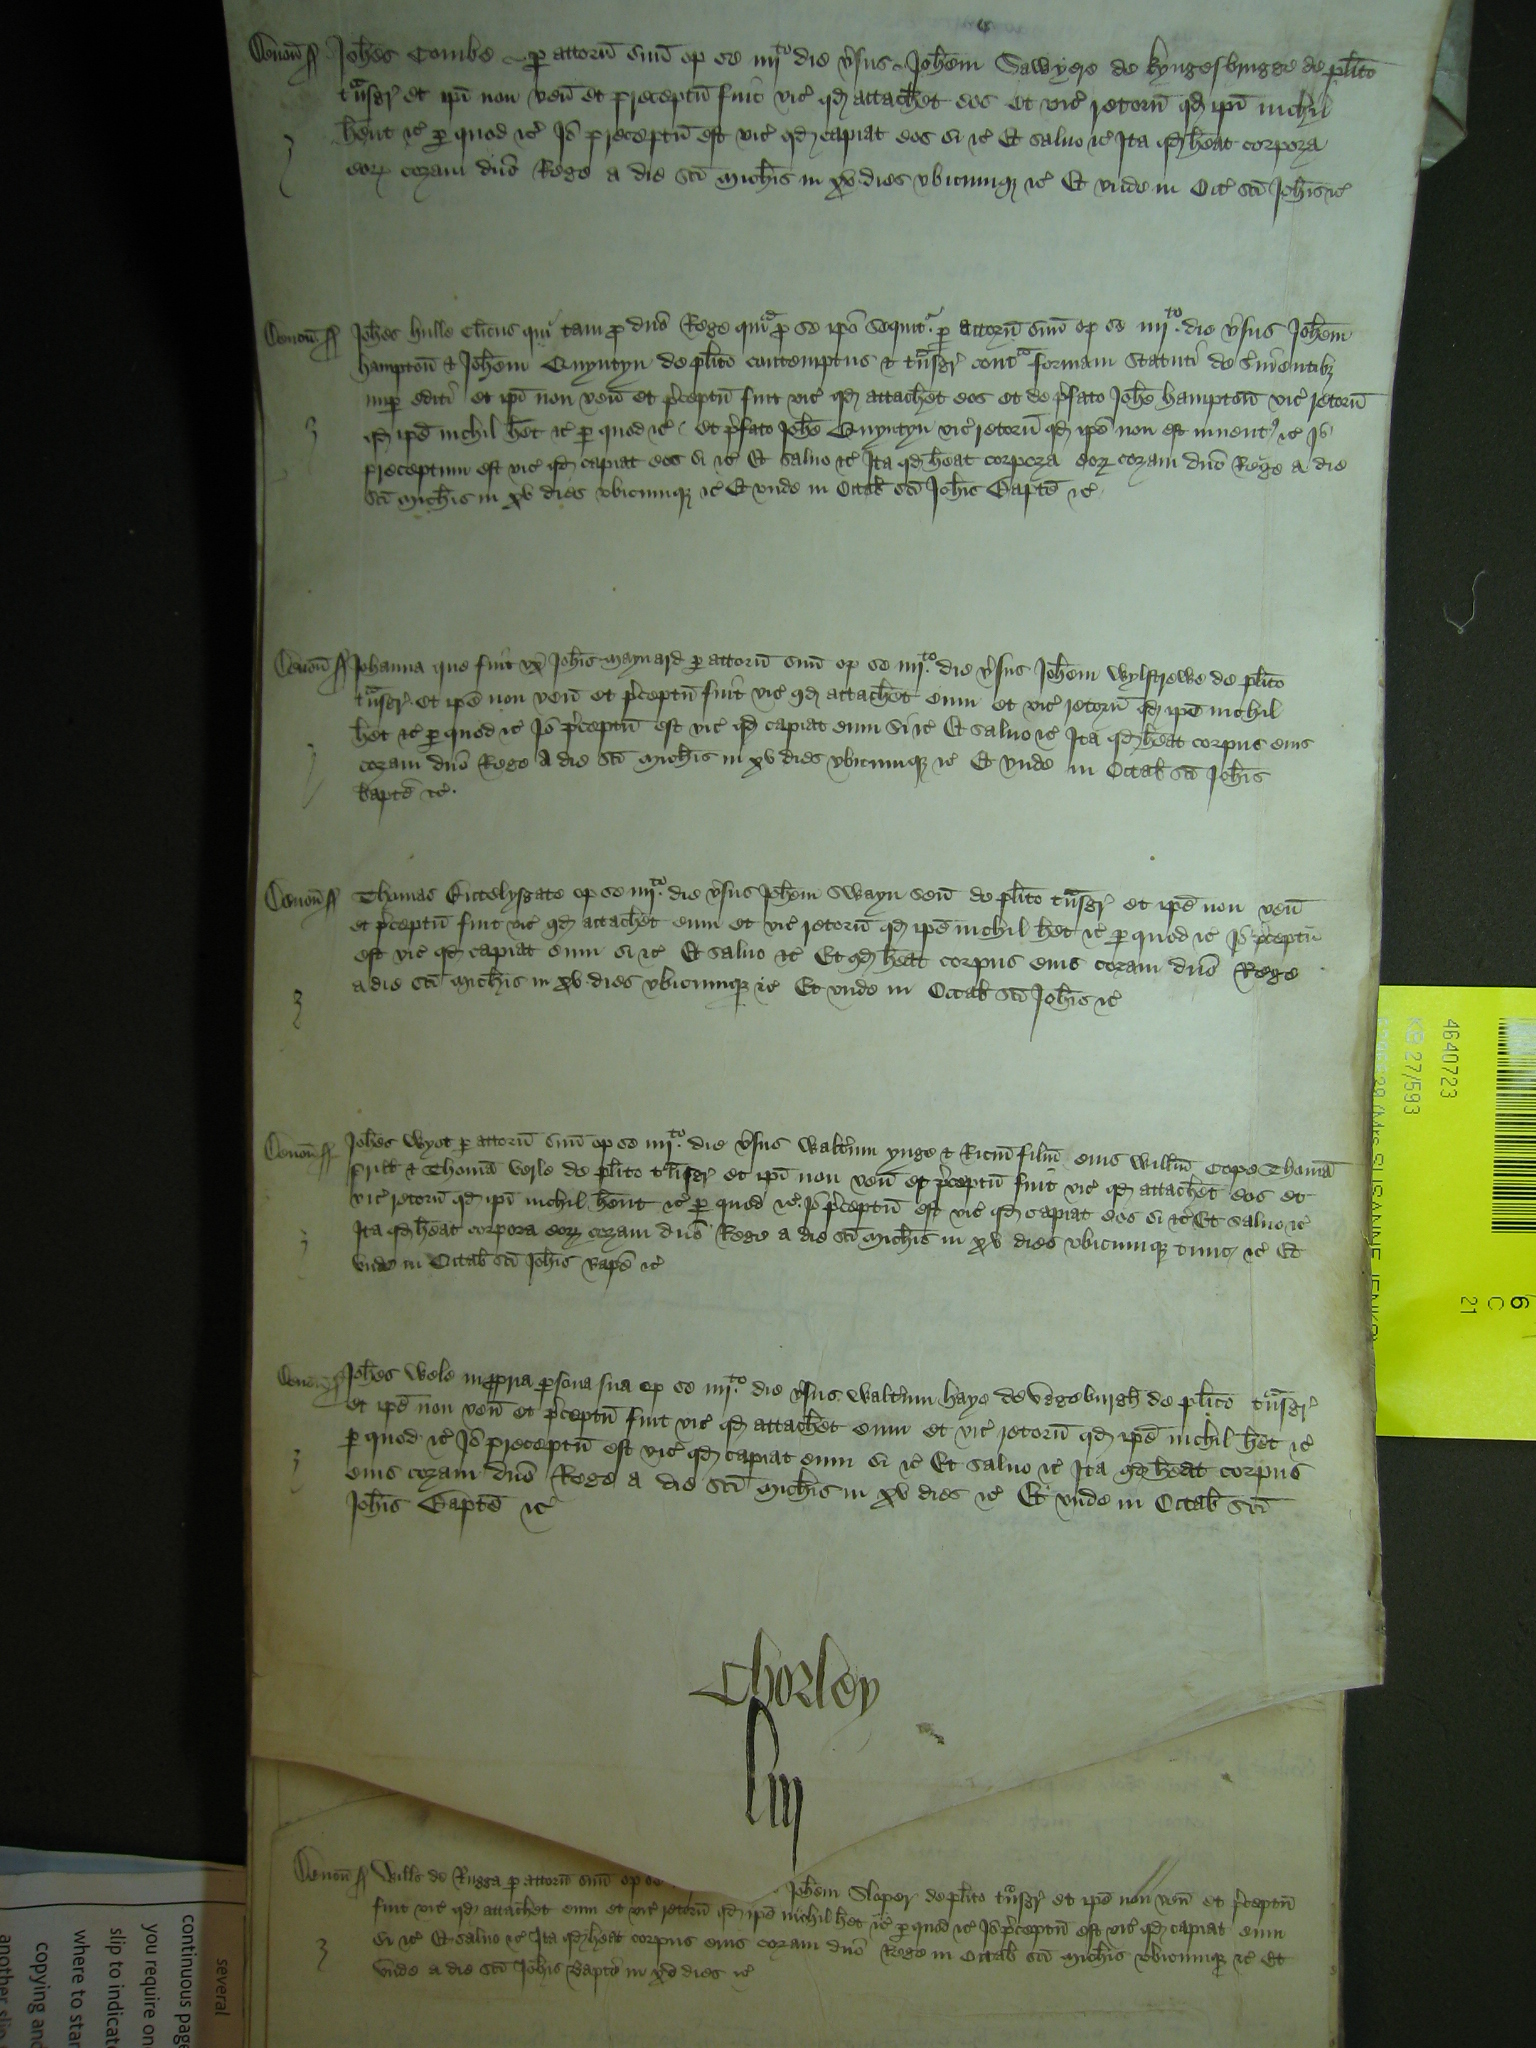 Devoñ ss Joh̃es Combe p attorñ suũ op se iiij.to die v̾sus Joh̃em Sawyere de kyngesbrigge de pl̃ito
t̃nsgr̃ et ip̃i non veñ et preceptũ fuit vic̾ qd attach̃et eos et vic̾ retorñ qd ip̃i nichil
h̃ent ⁊c̾ p quod ⁊c̾ Jõ preceptũ est vic̾ qd capiat eos si ⁊c̾ Et saluo ⁊c̾ Jta qd h̃eat corpora
eoꝝ coram dño Rege a die sc̃i Mich̃is in xv dies vbicumqꝫ ⁊c̾ Et vnde in Oct̾ sc̃i Joh̃is ⁊c̾
Devoñ ss Joh̃es hulle cl̃icus qui tam p dño Rege qua p se ip̃o sequit̾ p attorñ suũ op se iiij.to die v̾sus Joh̃em
hamptoñ ⁊ Joh̃em Quyntyn de pl̃ito contemptus ⁊ t̃nsgr̃ contra formam Statuti de s̾uientibꝫ
nup editi et ip̃i non veñ et p̾ceptũ fuit vic̾ qd attach̃et eos et de p̾fato Joh̃e hamptoñ vic̾ retorñ
qd ip̃e nichil h̃et ⁊c̾ p quod ⁊c̾ et p̾fato Joh̃e Quyntyn vic̾ retorñ qd ip̃e non est inuent̾ ⁊c̾ Jõ
preceptum est vic̾ qd capiat eos si ⁊c̾ Et saluo ⁊c̾ Jta qd h̃eat corpora eoꝝ coram dño Rege a die
sc̃i Mich̃is in xv dies vbicumqꝫ ⁊c̾ Et vnde in Octab̾ sc̃i Joh̃is Bapt̃e ⁊c̾
Devoñ ss Johanna que fuit vx̾ Joh̃is Maynard p attorñ suũ op se iiij.to die v̾sus Joh̃em Wylstrewe de pl̃ito
t̃nsgr̃ et ip̃e non veñ et p̾ceptũ fuit vic̾ qd attach̃et eum et vic̾ retorñ qd ip̃e nichil
h̃et ⁊c̾ p quod ⁊c̾ Jõ p̾ceptũ est vic̾ qd capiat eum si ⁊c̾ Et saluo ⁊c̾ Jta qd h̃eat corpus eius
coram dño Rege A die sc̃i Mich̃is in xv dies vbicumqꝫ ⁊c̾ Et vnde in Octab̾ sc̃i Joh̃is
bapt̃e ⁊c̾
Devoñ ss Thomas Bittelysgate op se iiij.to die v̾sus Joh̃em Swayn señ de pl̃ito t̃nsgr̃ et ip̃e non veñ
et p̾ceptũ fuit vic̾ qd attach̃et eum et vic̾ retorñ qd ip̃e nichil h̃et ⁊c̾ p quod ⁊c̾ Jõ p̾ceptũ
est vic̾ qd capiat eum si ⁊c̾ Et saluo ⁊c̾ Et qd h̃eat corpus eius coram dño Rege
a die sc̃i Mich̃is in xv dies vbicumqꝫ ⁊c̾ Et vnde in Octab̾ sc̃i Joh̃is ⁊c̾
Devoñ ss Joh̃es Wyot p attorñ suũ op se iiij.to die v̾sus Walt̾um ynge ⁊ Ric̃m filiũ eius Will̃m Cope Thomã
⁊ Thomã Verle de pl̃ito t̃nsgr̃ et ip̃i non veñ et p̾ceptũ fuit vic̾ qd attach̃et eos et
vic̾ retorñ qd ip̃i nichil h̃ent ⁊c̾ p quod ⁊c̾ Jõ p̾ceptũ est vic̾ qd capiat eos si ⁊c̾ Et saluo ⁊c̾
Jta qd h̃eat corpora eoꝝ coram dño Rege a die sc̃i Mich̃is in xv dies vbicumqꝫ tunc ⁊c̾ Et
vnde in Octab̾ sc̃i Joh̃is Bapt̃e ⁊c̾
Devoñ ss Joh̃es Wele in ppria psona sua op se iiij.to die v̾sus Walt̾um haye de Veggeburgh de pl̃ito t̃nsgr̃
et ip̃e non veñ et p̾ceptũ fuit vic̾ qd attach̃et eum et vic̾ retorñ qd ip̃e nichil h̃et ⁊c̾
p quod ⁊c̾ Jõ preceptũ est vic̾ qd capiat eum si ⁊c̾ Et saluo ⁊c̾ Jta qd h̃eat corpus
eius coram dño Rege a die sc̃i Mich̃is in xv dies ⁊c̾ Et vnde in Octab̾ sc̃i
Joh̃is Bapt̃e ⁊c̾
Chorley
liij
Devoñ ss Will̃s de Rugga p attorñ suũ op se Joh̃em Sloper de pl̃ito t̃nsgr̃ et ip̃e non veñ et p̾ceptũ
fuit vic̾ qd attach̃et eum et vic̾ retorñ qd ip̃e nichil h̃et ⁊c̾ p quod ⁊c̾ Jõ p̾ceptũ est vic̾ qd capiat eum
si ⁊c̾ Et saluo ⁊c̾ Jta qd h̃eat corpus eius coram dño Rege in Octab̾ sc̃i Mich̃is vbicumqꝫ ⁊c̾ Et
vnde a die sc̃i Joh̃is Bapt̃e in xv dies ⁊c̾
4640723
KB 27/593
6
C
21
several
continuous page
you require on
slip to indicate
where to star
copying and
another slip